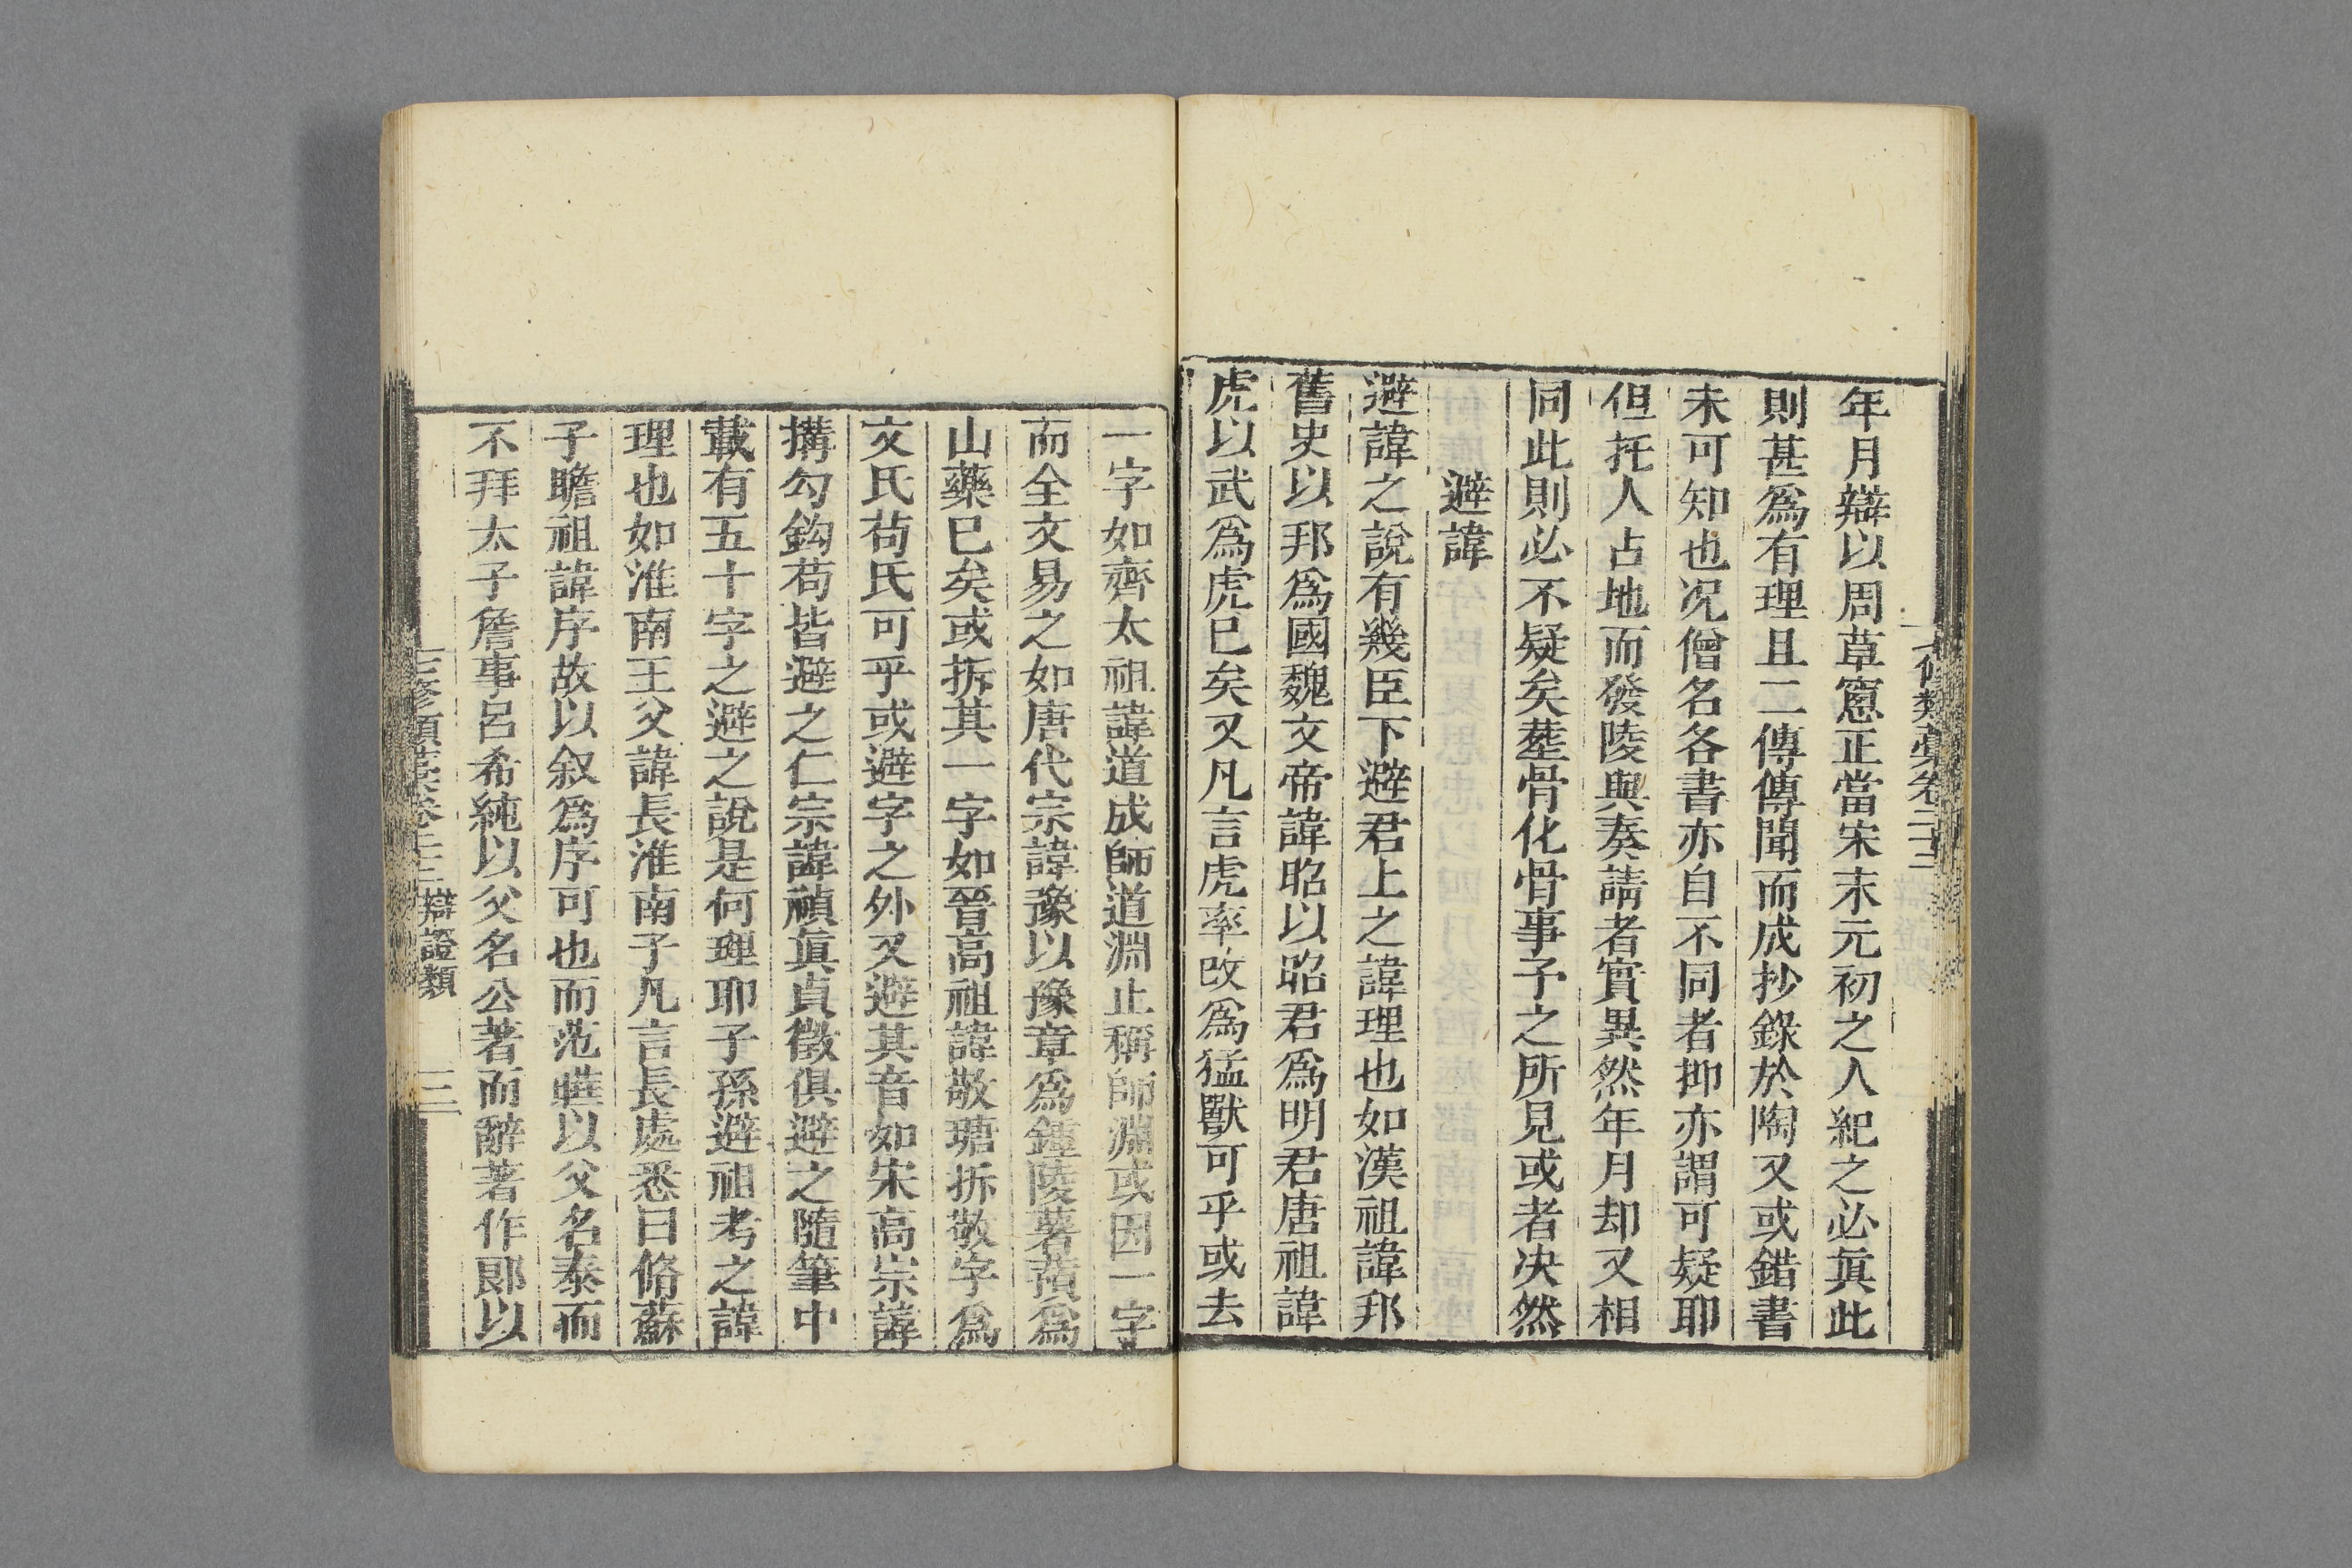 七修類藁卷二十三
年月辯以周草窻正當宋末元初之人紀之必眞此
則甚爲有理且二傳傳聞而成抄錄於陶又或錯書
未可知也况僧名各書亦自不同者抑亦謂可疑耶
但托人占地而發陵與奏請者實異然年月却又相
同此則必不疑矣塟骨化骨事予之所見或者决然
避諱
避諱之說有幾臣下避君上之諱理也如漢祖諱邦
舊史以邦爲國魏文帝諱昭以昭君爲明君唐祖諱
虎以武爲虎巳矣又凡言虎率改爲猛獸可乎或去
一字如齊太祖諱道成師道淵止稱師淵或因一字
而全文易之如唐代宗諱豫以豫章爲鍾陵薯蕷爲
山藥巳矣或拆其一字如晉高祖諱敬瑭拆敬字爲
文氏苟氏可乎或避字之外又避其音如宋高宗諱
搆勾鈎苟皆避之仁宗諱禎眞貞徵俱避之隨筆中
載有五十字之避之說是何理耶子孫避祖考之諱
理也如淮南王父諱長淮南子凡言長處悉曰脩蘇
子瞻祖諱序故以叙爲序可也而范曄以父名泰而
不拜太子詹事呂希純以父名公著而辭著作郞以
七修類藁卷二十三 辯證類 三